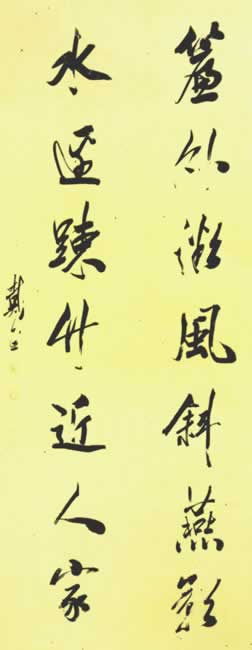 簾外微風斜燕影
水邊踈竹近人家
戴